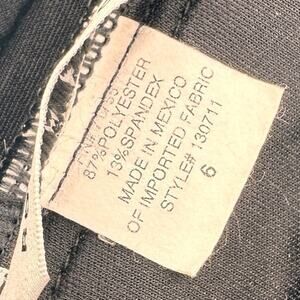 87%POLYESTER
13%SPANDEX
MADE IN MEXICO
OF IMPORTED FABRIC
STYLE# 130711
6